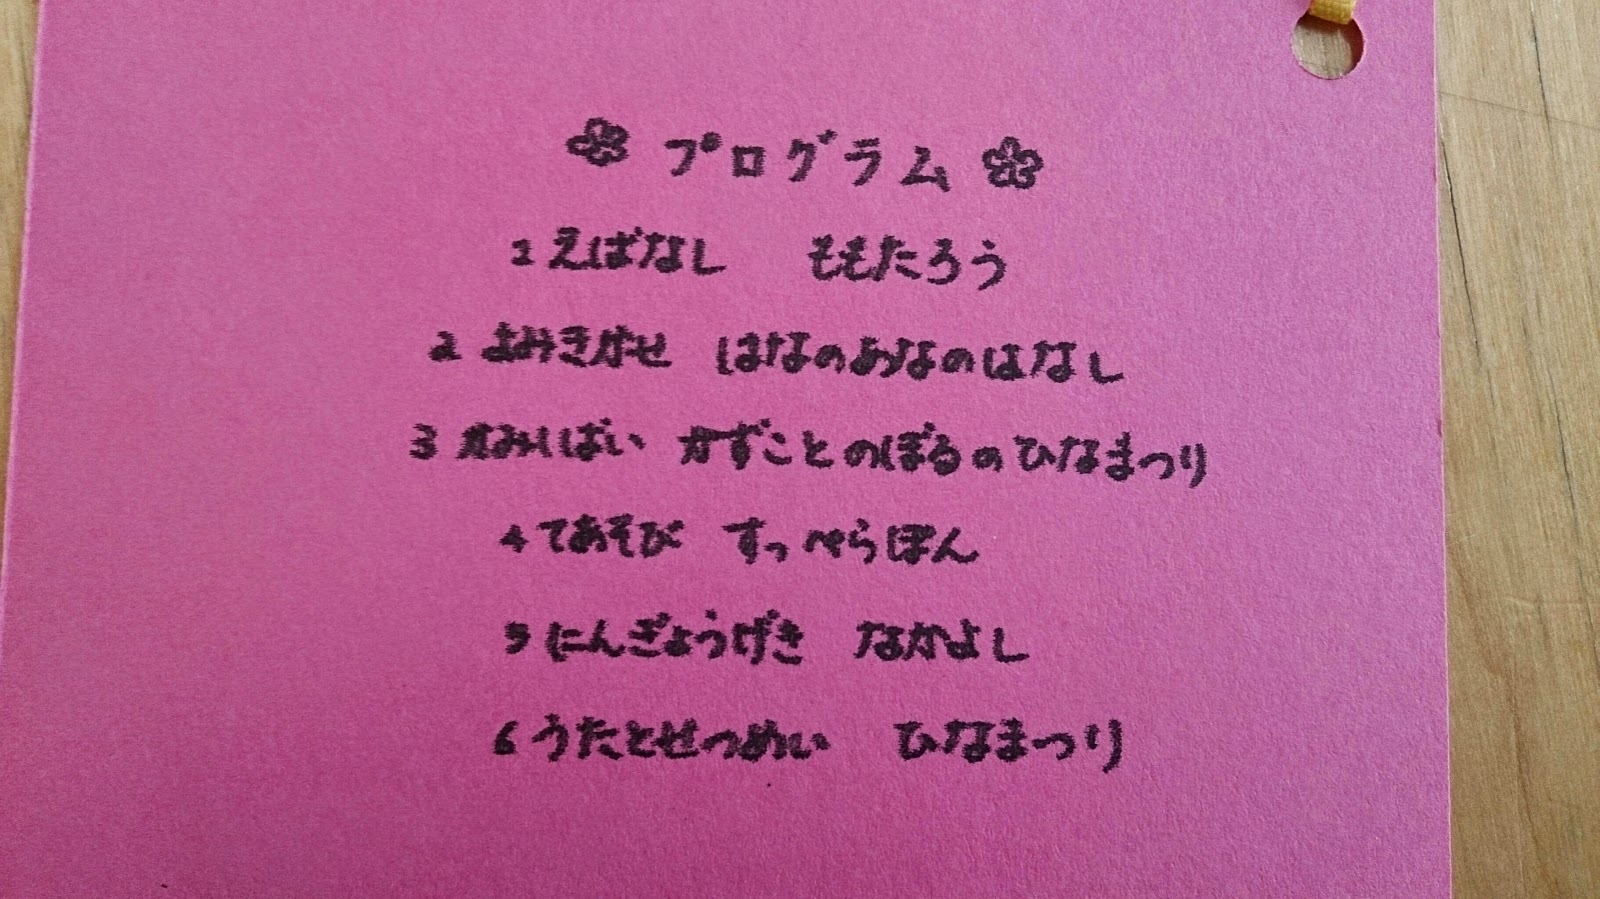 プログラム
1 えばなし ももたろう
2 よみきかせ はなのあなのはなし
3 かみしばい かずことのぼるのひなまつり
4 てあそび すっぺらぽん
5 にんぎょうげき なかよし
6 うたとせつめい ひなまつり